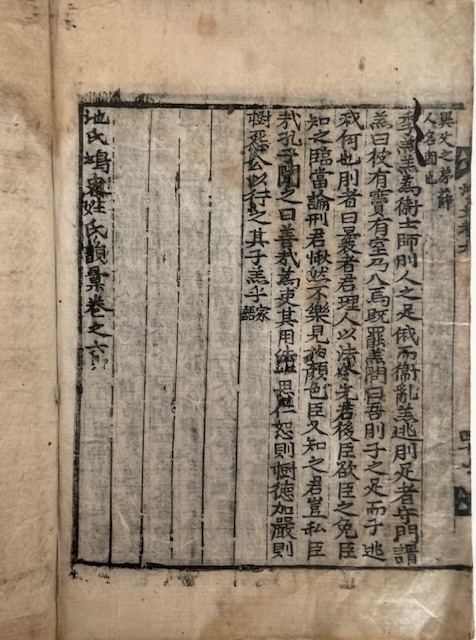 異父之弟薛
人名固也
羔為衛士師刖人之足俄而衛亂羔逃刖足者守門謂
羔曰彼有竇有室乃入焉既罷羔問曰吾刖子之足而子逃
我何也刖者曰曩者君理人以法令先君後臣欲臣之免臣
知之臨當論刑君愀然不樂見於顔色臣又知之君豈私臣
哉孔子聞之曰善哉為吏其用法一思仁恕則樹德加嚴則
樹怨公以行之其子羔乎家語
池氏鴻史姓氏韻彙卷之六